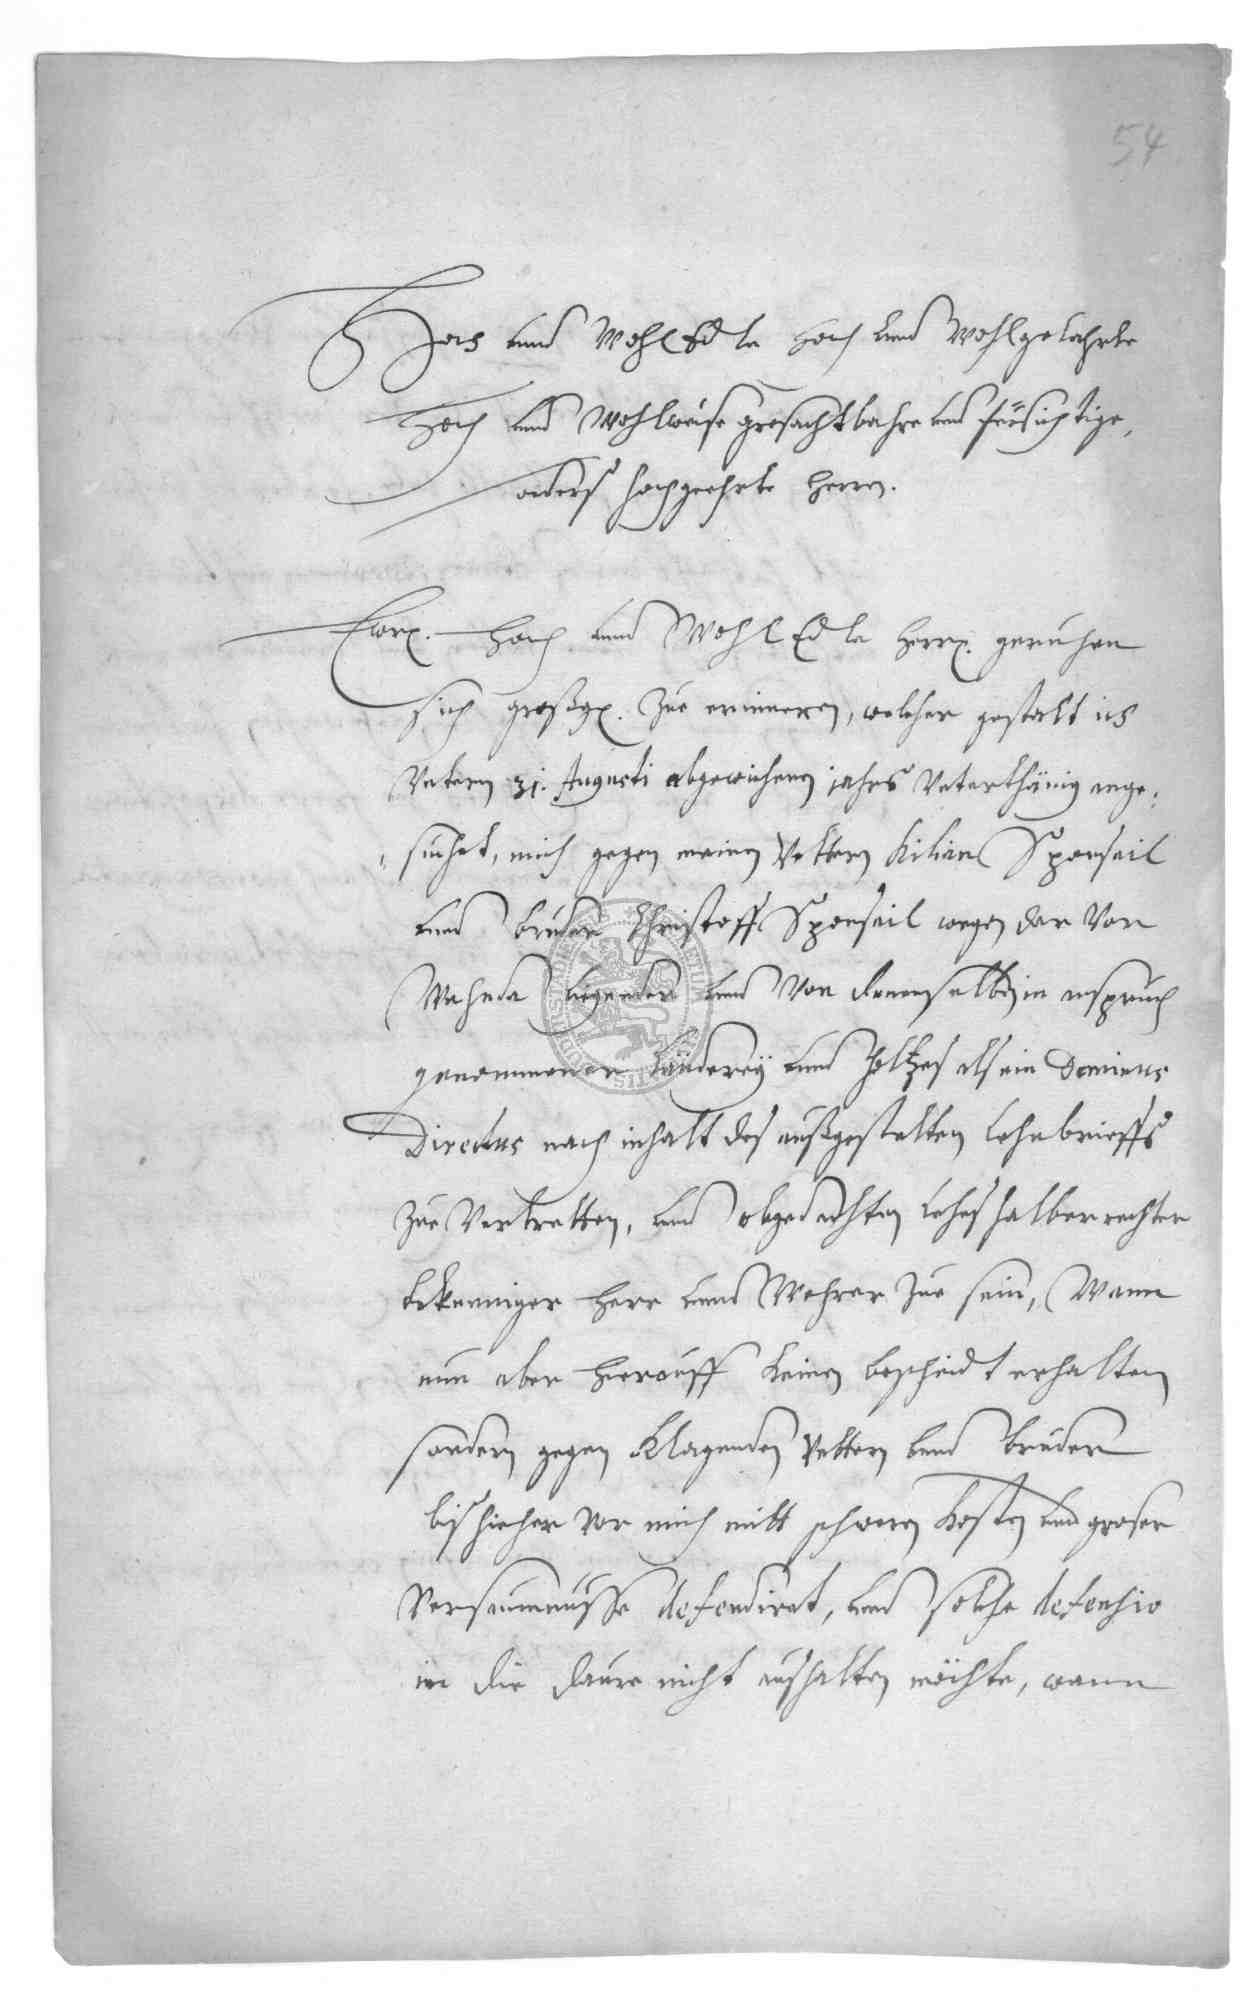 54
Hoch unnd WohlEdle Hoch unnd Wohlgelahrte
Hoch unnd Wohlweise grosachtbahre und fürsichtige,
onders hochgeehrte Herrn.
Ewer. Hoch unnd WohlEdle Herr. geruhen
sich großg. zue erinneren, welcher gestalt ich
Untern 31. Augusti abgewichenen jahrs Unterthänig ange-
suchet, mich gegen meinen Vettern Kilian Sponseil
unnd bruder Christoff Sponseil wegen der Vor
Wahnda liegender unnd Von denenselben in anspruch
genommener Länderey unnd Holtzes als ein Dominus
Directus nach inhalt des außgestelten Lehnbrieffs
zue Vertretten, und obgedachten Lehns halber rechter
bekenniger Herr unnd Wehrer zue sein, Wann
nun aber hierauff keinen bescheidt erhalten
sondern gegen klagenden Vettern unnd bruder
bishieher vor mich mitt schweren Kosten und groser
Versäumnüsse defendiret, und solche defensio
in die daure nicht aushalten möchte, wann